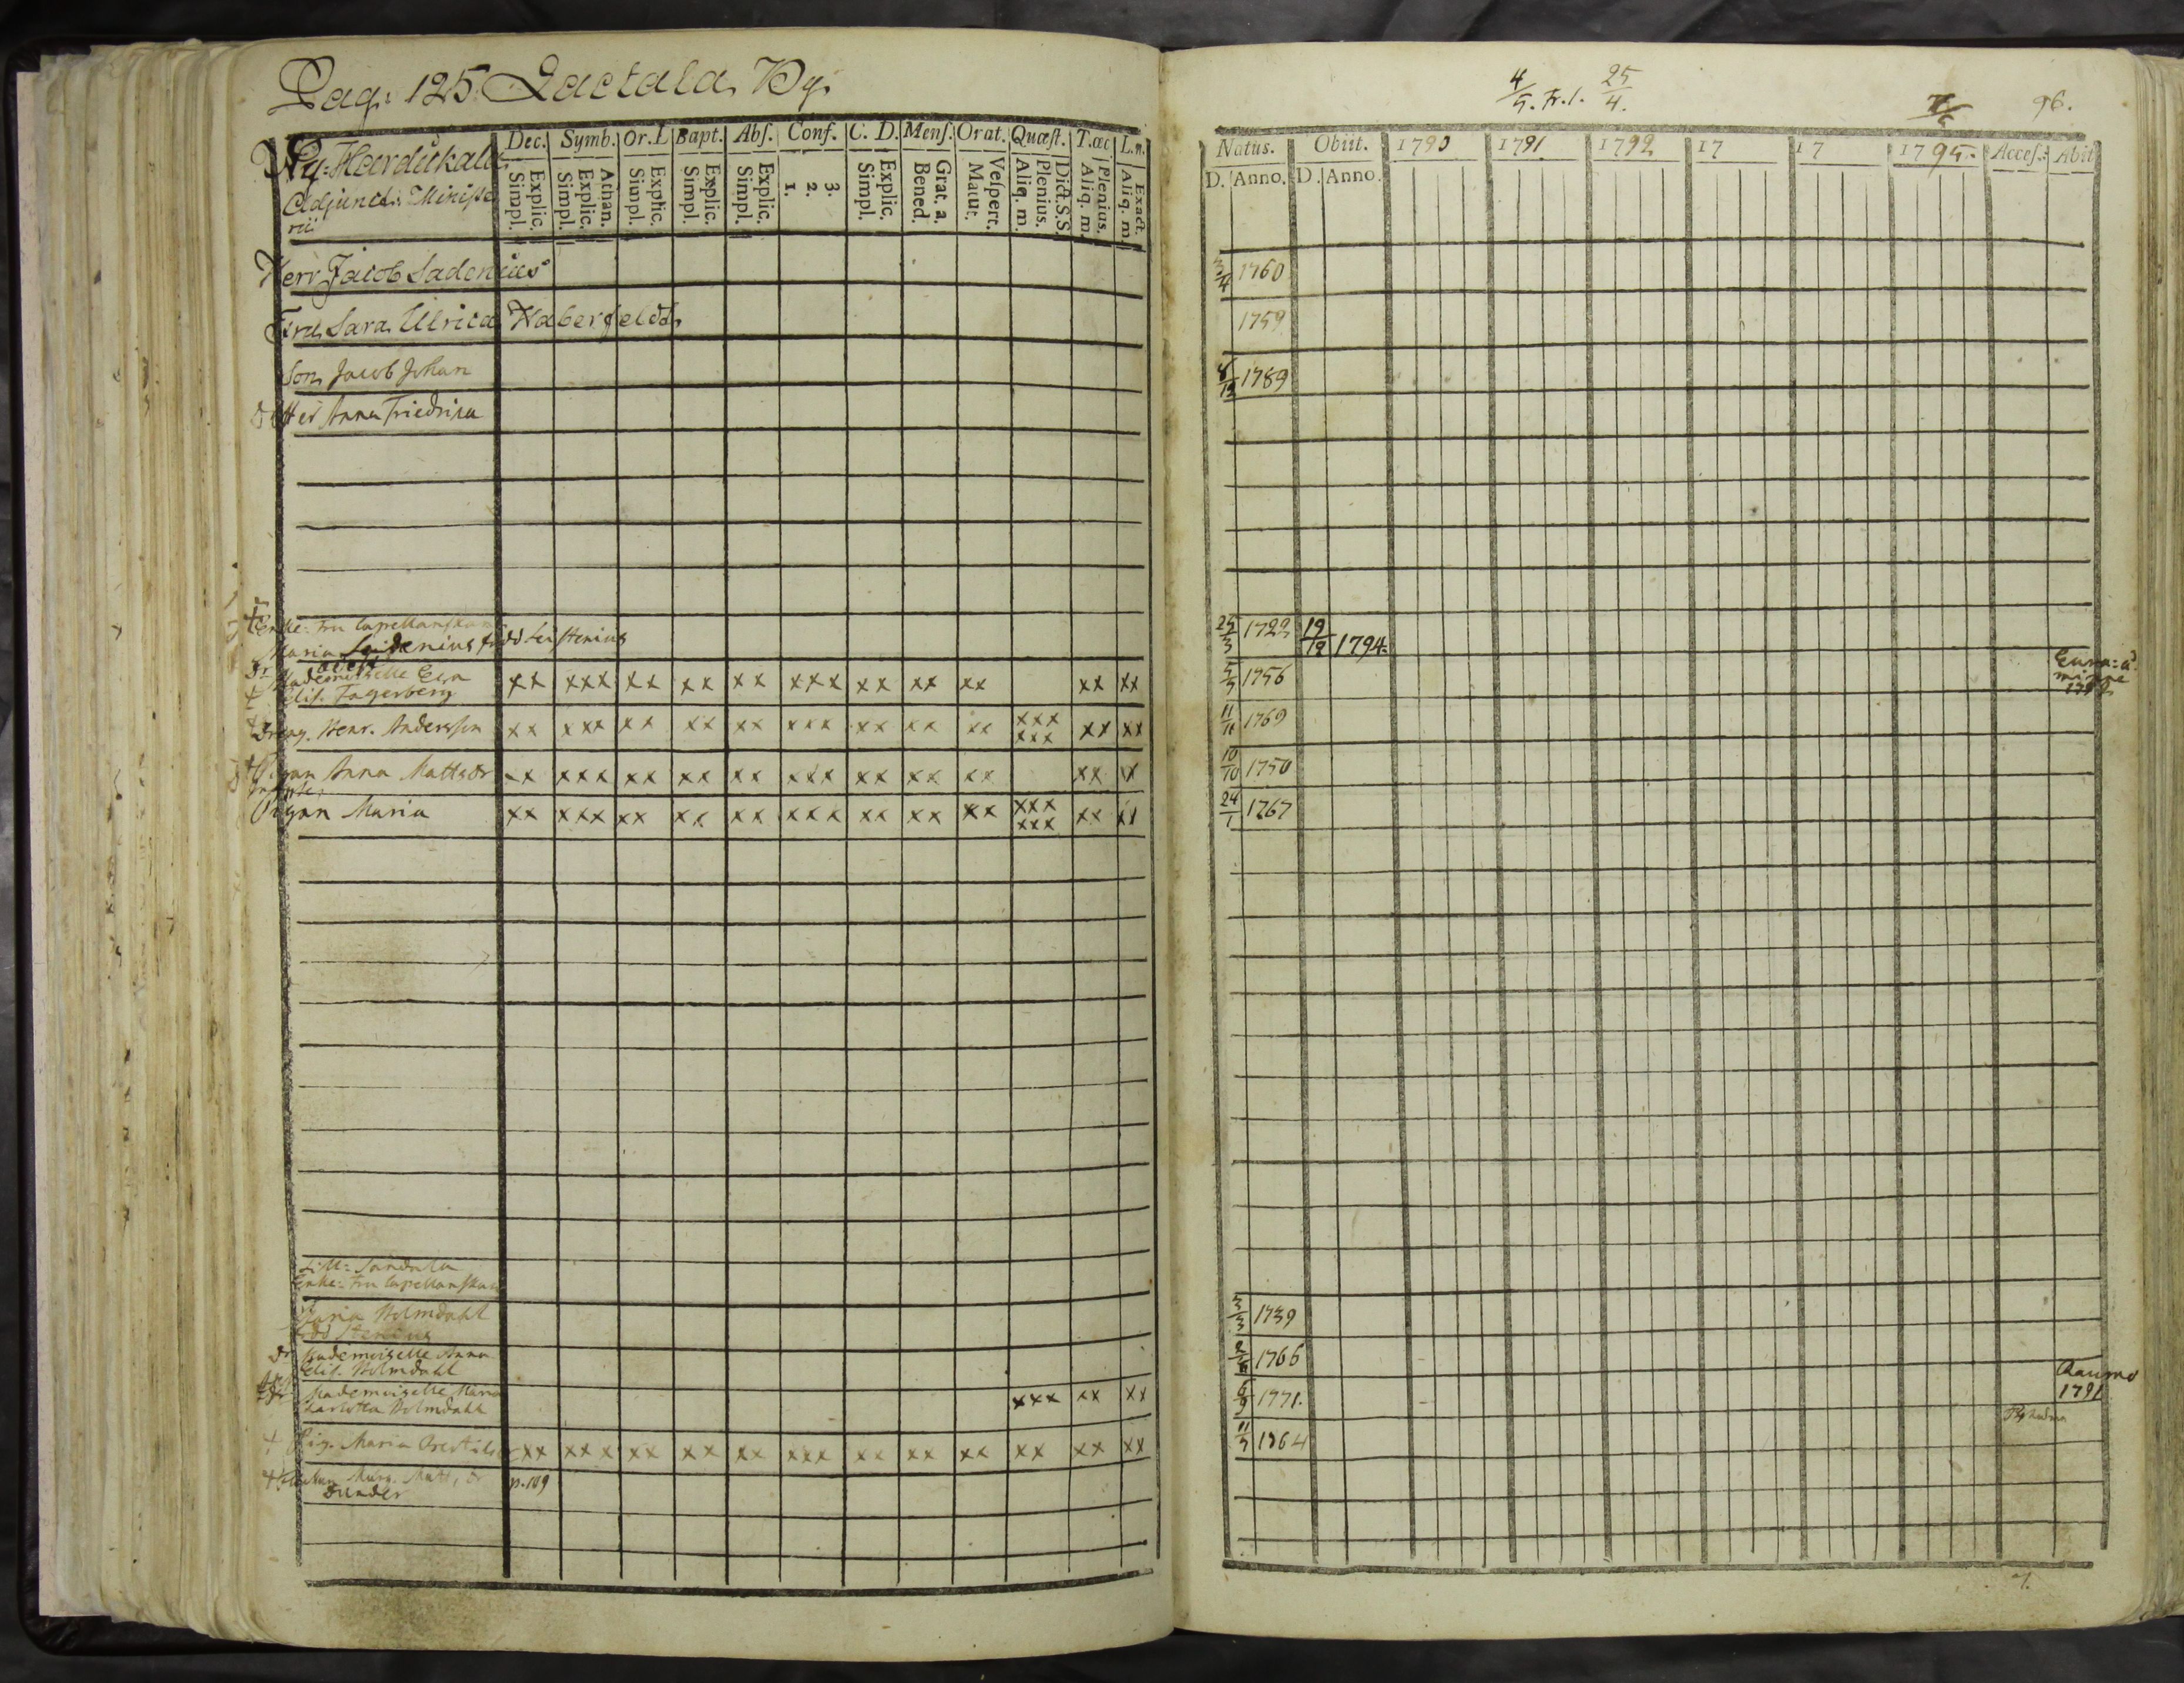 Pag: 125. Lactala By.
Ny-Heerdukala
Adjunct: Ministe
rii
Dec. Symb. Or. L Bapt. Abſ. Conf. C. D. Menſ. Orat. Quæſt. T.œc L.n.
Explic. Simpl. Athan. Explic. Simpl. Explic. Simpl. Explic. Simpl. Explic. Simpl. 3. 2. 1. Explic. Simpl. Grat. a. Bened. Veſpert. Matut. Dict.S.S. Plenius. Aliq. m. Plenius. Aliq. m. Exact. Aliq. m
Herr Jacob Sadenius
Fru Sara Ulrica Haberfeldt
Son Jacob Johan
Dotter Anna Friedrica
Enke: Fru Capellanskan
Maria Sadenius född Leistenius
Dr Mademoiselle Eva
Elis. Fagerberg
xx xxx xx xx xx xxx xx xx xx xx xx
Dreng. Henr. Andersson xx xxx xx xx xx xxx xx xx xx xxx xxx xx xx
Pigan Anna Mattsdr xx xxx xx xx xx xxx xx xx xx xx x
Pigan Maria xx xxx xx xx xx xxx xx xx xx xxx xxx xx xx
Sandala
Enke: Fru Capellanskan
Maria Holmdahl
född Stenius
Dr Mademoiselle Anna
Elis. Holmdahl
Dr Mademoiselle Maria
Charlotta Holmdahl
xxx xx xx
Pig. Maria xx xxx xx xx xx xxx xx xx xx xx xx xx
Marg. Matts dr p. 109
Dunder
4/5. Fr. 1. 25/4.
96.
Natus. Obiit. 1790 1791 1792 17 17 1795. Acceſ. Abit
D. Anno. D. Anno.
3/4 1760
1759
8/12 1789
25/3 1722 19/12 1794.
5/5 1756
Eura:
1792
11/11 1769
10/10 1750
24/1 1767
3/3 1739
2/11 1766
Raumo
1791
6/9 1771.
11/5 1764